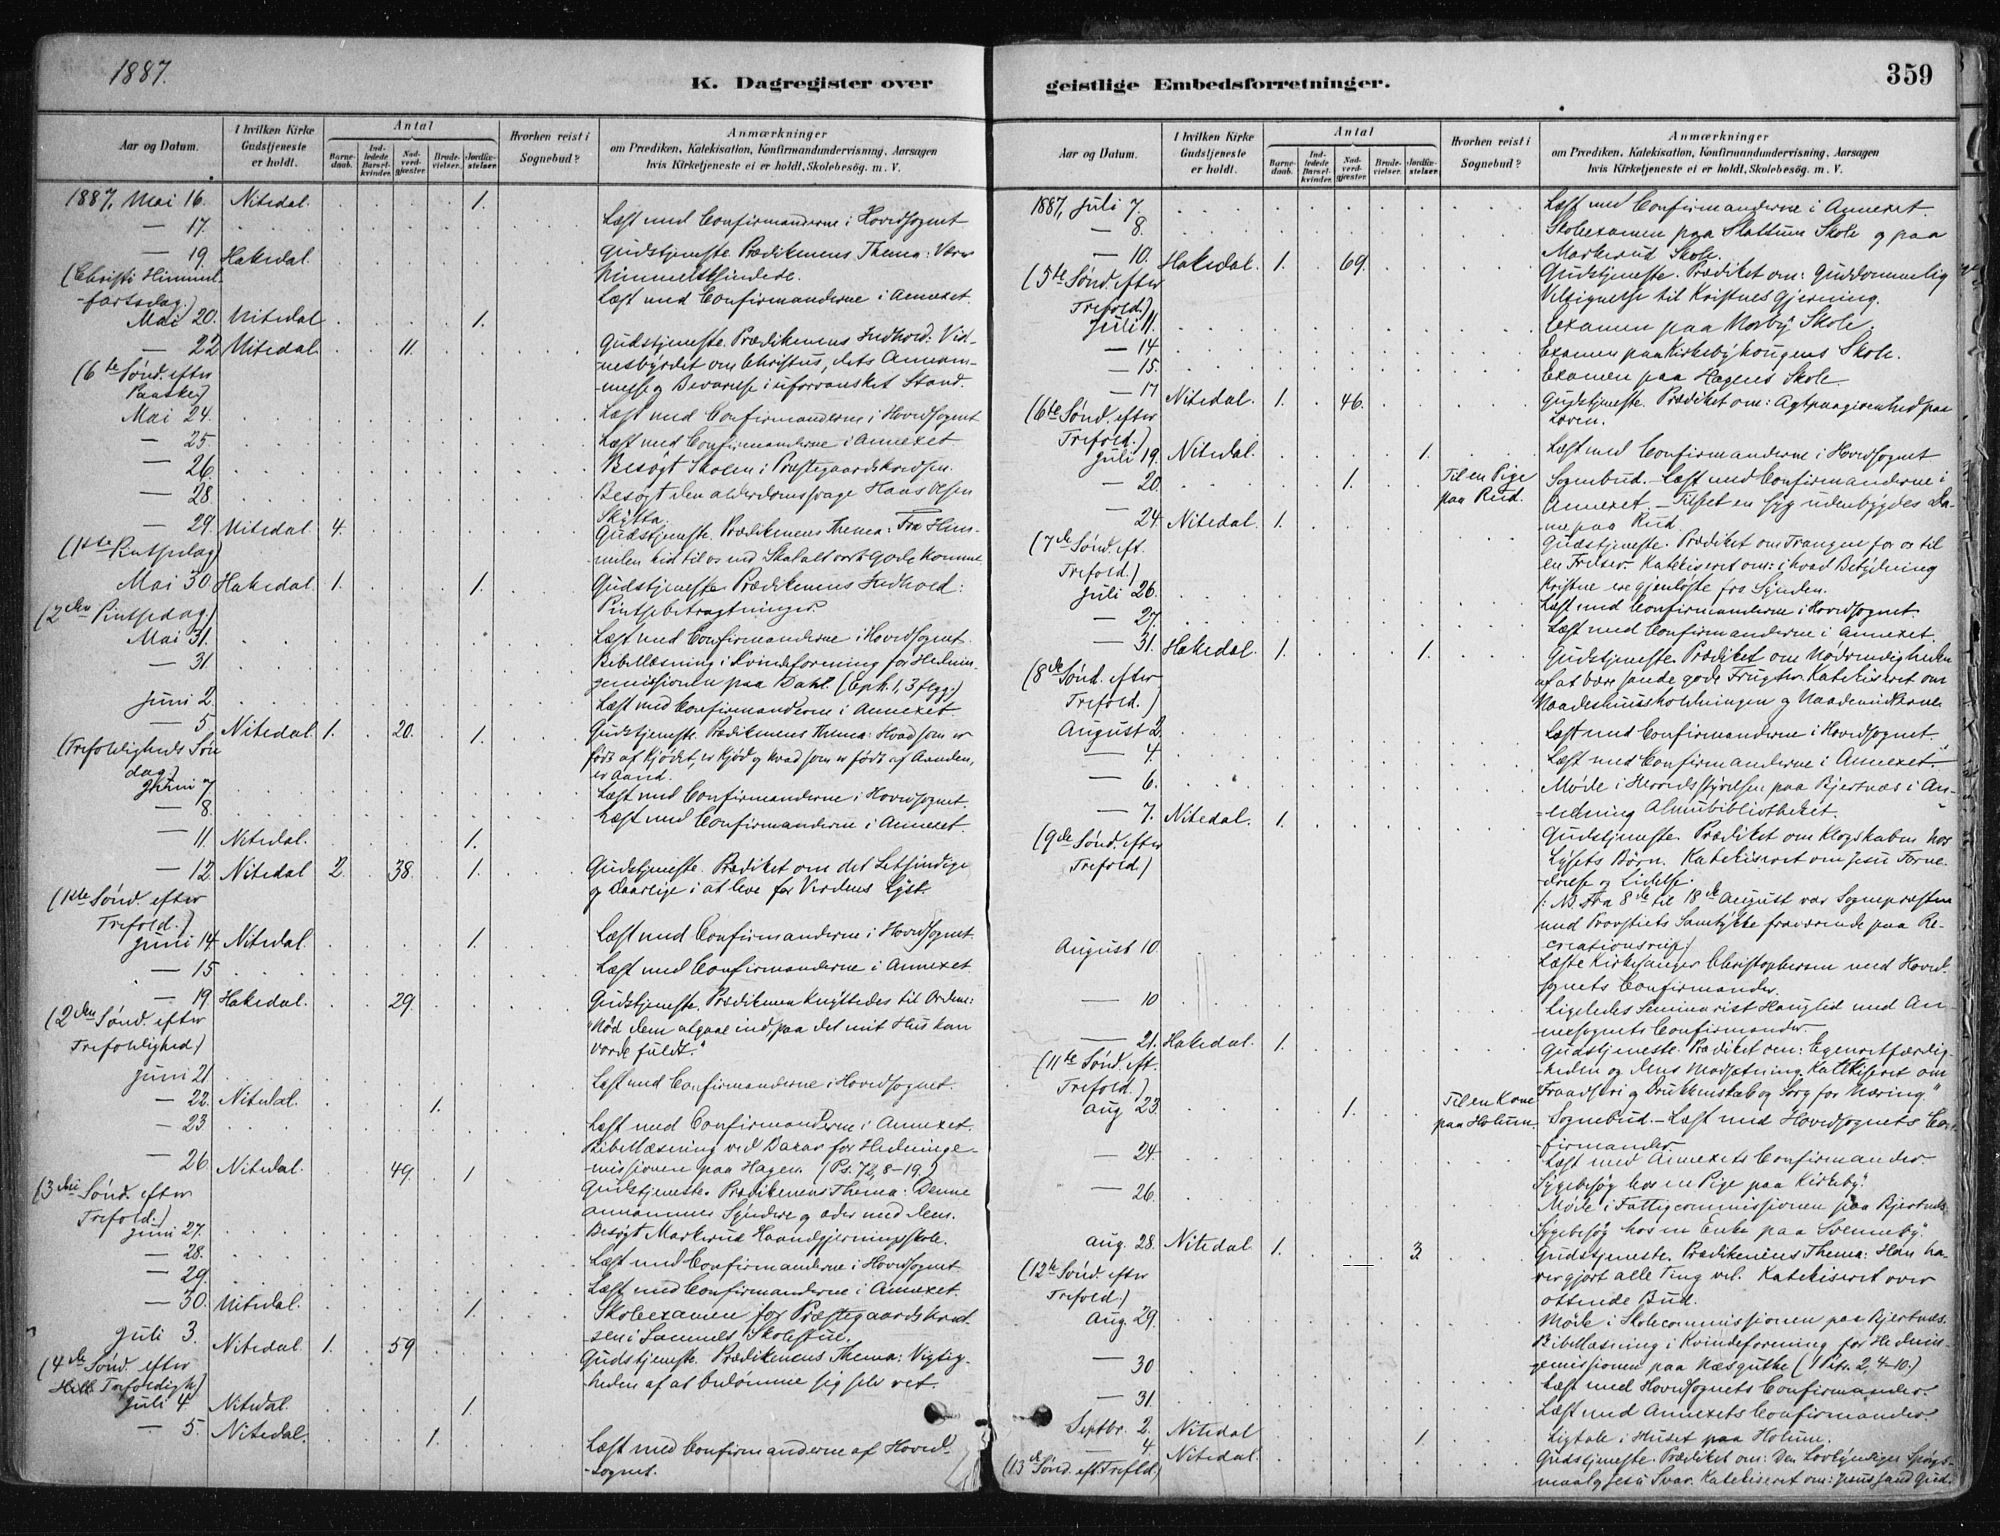 1887.
K. Dagregister over
Aar og Datum.
I hvilken Kirke Gudstjeneste er holdt.
Antal
Barne-daab.
Ind-ledede Barsel-kvinder.
Nad-verd-gjæster.
Brude-vielser.
Jordfæ-stelser.
Hvorhen reist i Sognebud?
Anmærkninger
om Prædiken, Katekisation, Konfirmandundervisning, Aarsagen
hvis Kirketjeneste ei er holdt, Skolebesøg m. V.
1887, Mai 16. Nitedal 1.
— 17. Læst med Confirmanderne i Hovedsognet
— 19 Hakedal. Gudstjeneste. Prædikenens Thema: Være
(Christi Himmel- himmelsksindede.
-fartsdag.) Læst med Confirmanderne i Annexet.
Mai 20. Nitedal 1.
— 22 Nitedal 11. Gudstjeneste. Prædikenens Indhold: Vid-
(6te Sønd. efter -nesbyrdet om Christus, dets Annam-
Paaske) -melse og Bevarelse i uforvansket Stand.
Mai 24. Læst med Confirmanderne i Hovedsognet
— 25. Læst med Confirmanderne i Annexet
— 26. Besøgt Skolen i Præstegaardskredsen.
— 28 Besøgt den alderdomssvage Hans Olsen
Skytta.
— 29. Nitedal 4. Gudstjeneste. Prædikenens Thema: Fra Him-
(1ste Pintsedag) -melen hid til os ned Skal alt vort Gode komme
Mai 30 Hakedal. 1. 1. Gudstjeneste. Prædikenens Indhold:
(2den Pintsedag) Pintsebetragtninger.
Mai 31. Læst med Confirmanderne i Hovedsognet.
— 31. Bibellæsning i Kvindeforening for Hednin-
-gemissionen paa Dahl. (Eph. 1, 3 flgg.)
Juni 2 Læst med Confirmanderne i Annexet.
— 5 Nitedal 1. 20. 1. Gudstjeneste. Prædikenens Thema: Hvad som er
(Trefoldigheds Søn født af Kjødet, er Kjød og hvad som er født af Aanden,
dag) er Aand.
Juni 7 Læst med Confirmanderne i Hovedsognet.
— 8. Læst med Confirmanderne i Annexet.
— 11. Nitedal 1.
— 12 Nitedal 2 38. 1. Gudstjeneste. Prædiket om det Letsindige
(1ste Sønd. efter og Daarlige i at leve for Verdens Lyst.
Trefold.)
Juni 14 Nitedal. 1. Læst med Confirmanderne i Hovedsognet.
— 15 Læst med Confirmanderne i Annexet.
— 19. Hakedal. 29. Gudstjeneste. Prædikenen knyttedes til Ordene:
(2den Sønd. efter "Nød dem at gaae ind paa det mit Hus kan
Trefoldighed) vorde fuldt."
Juni 21. Læst med Confirmanderne i Hovedsognet.
— 22. Nitedal. 1.
— 23 Læst med Confirmanderne i Annexet.
Bibellæsning ved Bazar for Hedninge-
-missionen paa Hagen. (Ps. 72, 8-19.)
— 26. Nitedal. 49. 1 Gudstjeneste. Prædikenens Thema: Denne
(3die Sønd. efter annammer Syndere og æder med dem.
Trefold.)
Juni 27. Besøgt Markerud Haandgjerningsskole.
— 28. Læst med Confirmanderne i Hovedsognet.
— 29. Læst med Confirmanderne i Annexet.
— 30. Nitedal. 1. Skoleexamen for Præstegaardskred
-sen i Sammes Skolestue.
Juli 3. Nitedal. 1. 59 Gudstjeneste. Prædikenens Thema: Vigtig-
(4de Sønd. efter -heden af at bedømme sig selv ret.
Trefoldigh)
Juli 4 Nitedal. 1.
— 5. Nitedal. 1. Læst med Confirmanderne af Hoved-
-sognet.
geistlige Embedsforretninger.
359
Aar og Datum.
I hvilken Kirke Gudstjeneste er holdt.
Antal
Barne-daab.
Ind-ledede Barsel-kvinder.
Nad-verd-gjæster.
Brude-vielser.
Jordfæ-stelser.
Hvorhen reist i Sognebud?
Anmærkninger
om Prædiken, Katekisation, Konfirmandundervisning, Aarsagen
hvis Kirketjeneste ei er holdt, Skolebesøg m. V.
1887, Juli 7. Læst med Confirmanderne i Annexet.
— 8. Skoleexamen paa Slattum Skole og paa
Markerud Skole.
— 10. Hakedal. 1. 69. Gudstjeneste. Prædiket om: Guddommelig
(5te Sønd. efter Velsignelse til Kristnes Gjerning.
Trefold.)
Juli 11. Examen paa Morby Skole.
— 14. Examen paa Kirkebyhougens Skole.
— 15. Examen paa Hagens Skole
— 17 Nitedal. 1. 46. Gudstjeneste. Prædiket om: Agtpaagivenhed paa
(6te Sønd. efter Loven.
Trefold.)
Juli 19. Nitedal. 1. Læst med Confirmanderne i Hovedsognet
— 20. 1. Til en Pige paa Rud. Sognebud. Læst med Confirmanderne i
Annexet. — Tilset en syg udenbygdes Da-
me paa Rud.
— 24. Nitedal. 1. Gudstjeneste. Prædiket om Trangen for os til
(7de Sønd. eft. en Frelser. Katekiseret om: i hvad Betydning
Trefold.) Kristne ere gjenløste fra Synden.
Juli 26. Læst med Confirmanderne i Hovedsognet.
— 27. Læst med Confirmanderne i Annexet.
— 31. Hakedal. 1. 1. Gudstjeneste. Prædiket om Nødvendigheden
(8de Sønd. efter af at bære sande gode Frugter. Katekiseret om
Trefold.) Naadeshuusholdningen og Naademidlerne.
August 2 Læst med Confirmanderne i Hovedsognet.
— 4. Læst med Confirmanderne i Annexet.
— 6. Møde i Herredsstyrelsen paa Bjertnæs i An-
-ledning Almuebibliotheket.
— 7. Nitedal. 1. Gudstjeneste. Prædiket om Klogskaben hos
(9de Sønd. efter Lysets Børn. Katekiseret om Jesu Forne-
Trefold.) -drelse og Lidelse.
(: NB. Fra 8de til 18de August var Sognepræsten
med Provstiets Samtykke fraværende paa Re-
-creationsreise)
August 10. Læste Kirkesanger Christophersen med Hoved-
sognets Confirmander.
— 10 Ligeledes Seminarist Hauglid med An-
-nexsognets Confirmander.
— 21. Hakedal. 1. Gudstjeneste. Prædiket om: Egenretfærdig-
(11te Sønd. eft. -heden og dens Modsætning. Katekiseret om
Trefold.) "Fraadseri og Drukkenskab og Sorg for Næring."
Aug 23. 1. Til en Kone paa Holum. Sognebud. — Læst med Hovedsognets Con-
-firmander.
— 24. Læst med Annexets Confirmander.
— 26. Sygebesøg hos en Pige paa Kirkeby.
Møde i Fattigcommissionen paa Bjertnæs.
Sygebesøg hos en Enke paa Svenneby.
Aug. 28. Nitedal 1. 3. Gudstjeneste. Prædikenens Thema: Han ha-
(12te Sønd. efter -ver gjort alle Ting vel. Katekiseret over
Trefold.) ottende Bud.
Aug. 29. Møde i Skolecommissionen paa Bjertnæs.
Bibellæsning i Kvindeforening for Hednin-
-gemissionen paa Næsguthe (1 Petr. 2, 4-10.)
— 30 Læst med Hovedsognets Confirmander.
— 31. Læst med Annexets Confirmander.
Septbr. 2. Nitedal 1 Ligtale i Huset paa Holum.
— 4 Nitedal. Gudstjeneste. Prædiket om: Den Lovkyndiges Spørgs-
(13de Sønd. eft. Trefld.) maal og Jesu Svar. Katekiseret om: Jesus sand Gud.